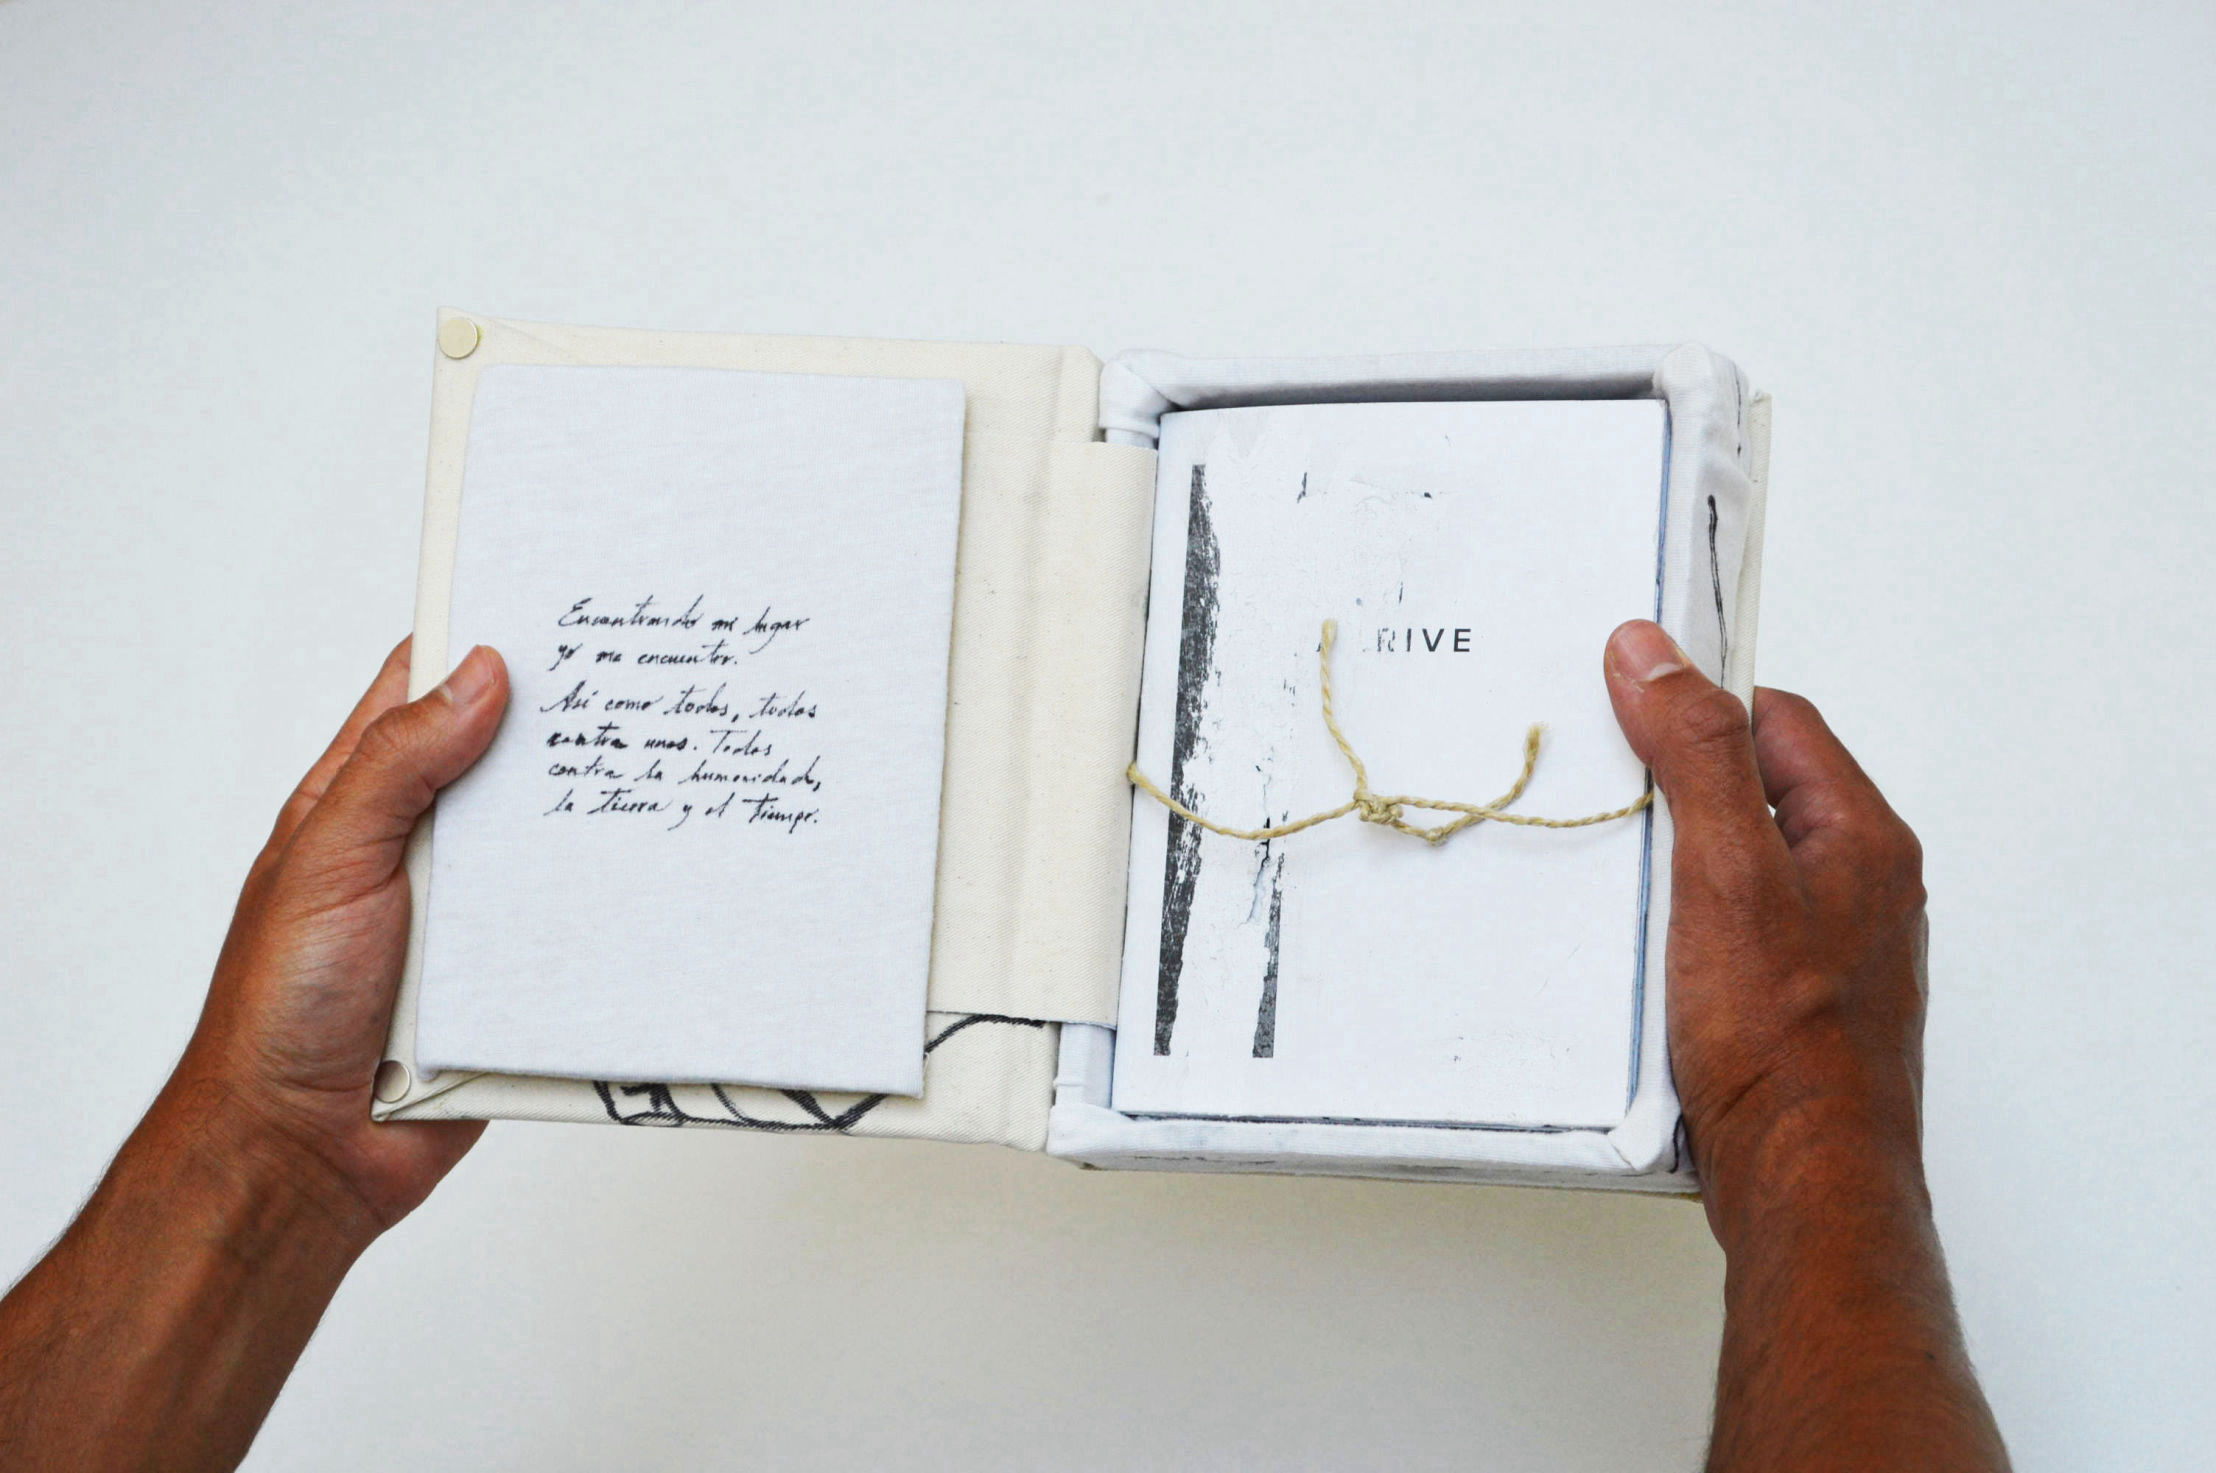 Encontrando mi lugar
yo me encuentro.
Así como todos, todos
contra unos. Todos
contra la humanidad,
la tierra y el tiempo.
RIVE